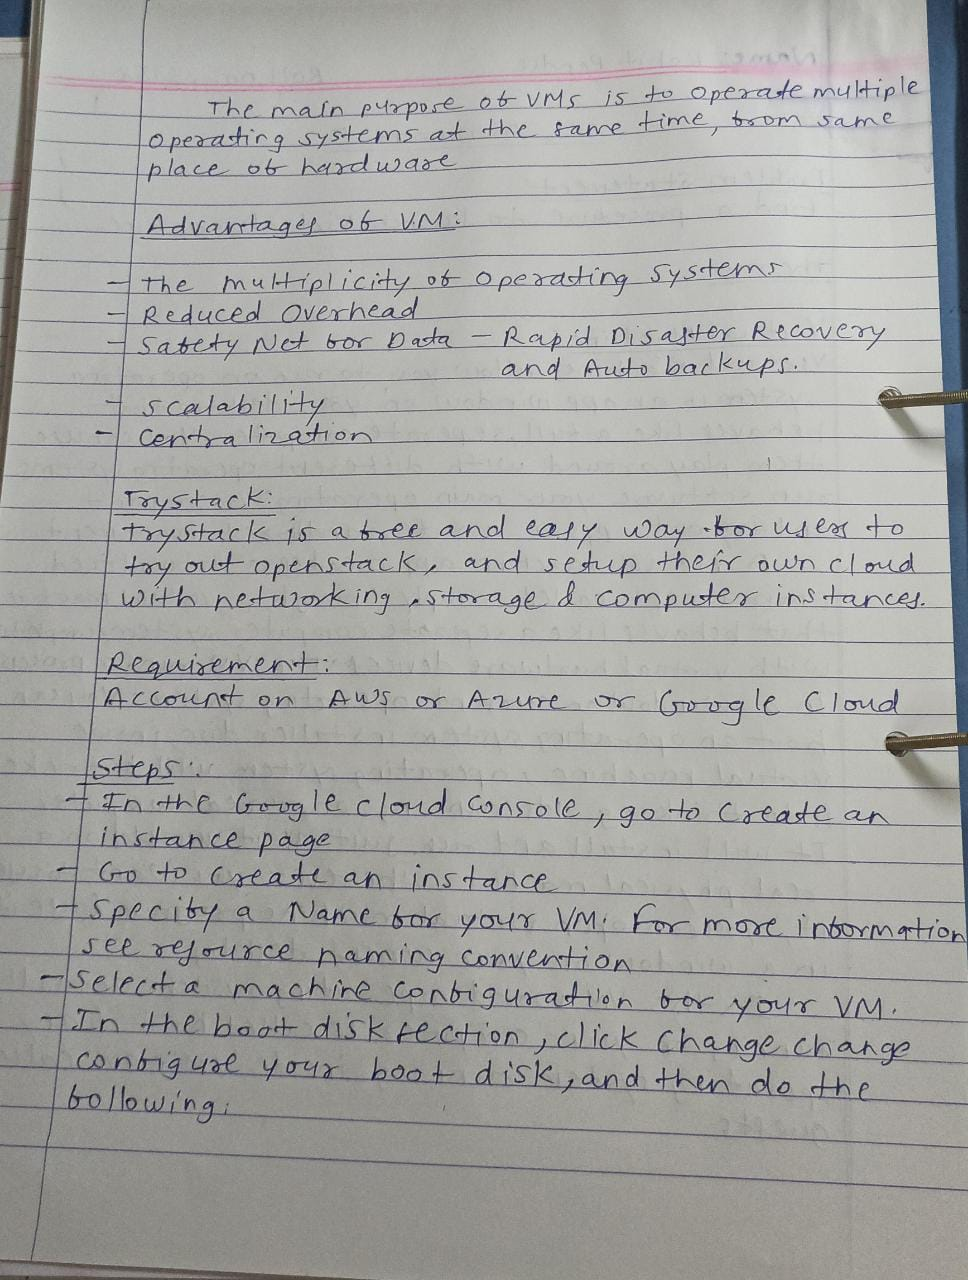 The main purpose of VMs is to operate multiple
operating systems at the same time, from same
place of hardware
Advantages of VM:
- the multiplicity of operating systems
- Reduced Overhead
- Safety Net for Data - Rapid Disaster Recovery
and Auto backups.
- scalability
- centralization
Trystack:
trystack is a free and easy way for users to
try out openstack, and setup their own cloud
with networking, storage & computer instances.
Requirement:
Account on AWS or Azure or Google Cloud
Steps:
- In the Google cloud console, go to create an
instance page
- Go to create an instance
- Specify a Name for your VM. For more information
see resource naming convention
- Select a machine configuration for your VM.
- In the boot disk section, click change change
configure your boot disk, and then do the
following: